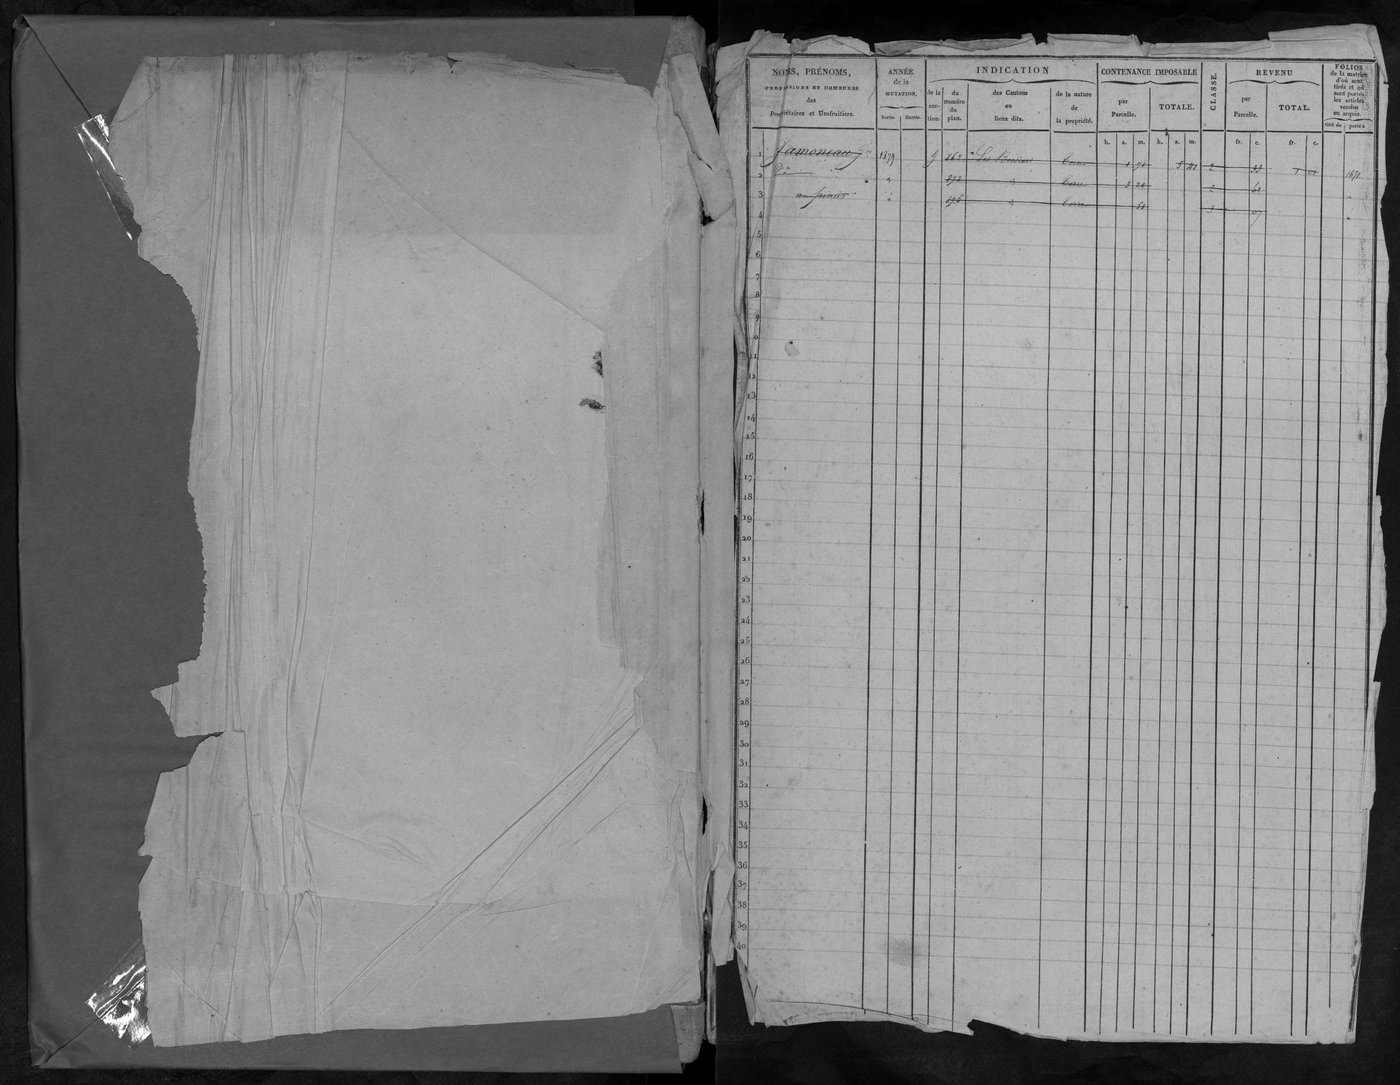 NOMS, PRÉNOMS,
PROFESSIONS ET DEMEURES
des
Propriétaires et Usufruitiers.
ANNÉE
de la
MUTATION.
Sortie. Entrée.
INDICATION
de la
sec-
tion.
du
numéro
du
plan.
des Cantons
ou
lieux dits.
de la nature
de
la propriété.
CONTENANCE IMPOSABLE
par
Parcelle.
TOTALE.
h. a. m. h. a. m.
CLASSE.
REVENU
par
Parcelle.
TOTAL.
fr. c. fr. c.
FOLIOS
de la matrice
d'où sont
tirés et où
sont portés
les articles
vendus
ou acquis.
tiré de porté à
1 1879 2
2 1671
3
4
5
6
7
8
9
10
11
12
13
14
15
16
17
18
19
20
21
22
23
24
25
26
27
28
29
30
31
32
33
34
35
36
37
38
39
40